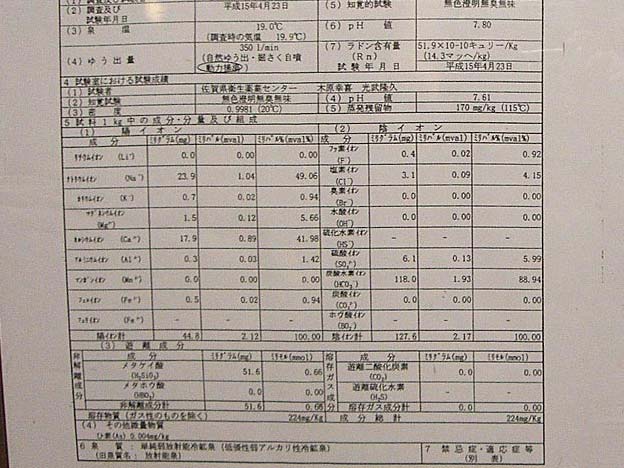 (2) 調査及び 試験年月日 平成15年4月23日
(5) 知覚的試験 無色澄明無臭無味
(3) 泉温 19.0℃ (調査時の気温 19.9℃)
(6) pH 値 7.80
(4) ゆう出量 350 l/min (自然ゆう出・掘さく自噴 動力揚湯)
(7) ラドン含有量 (Rn) 51.9×10-10キュリー/Kg (14.3マッヘ/Kg)
試験年月日 平成15年4月23日
4 試験室における試験成績
(1) 試験者 佐賀県衛生薬業センター 木原幸喜 光武隆久
(2) 知覚試験 無色澄明無臭無味 (4) pH 値 7.61
(3) 密度 0.9981 (20℃) (5) 蒸発残留物 170 mg/kg (115℃)
5 試料1kg中の成分・分量及び組成
(1) 陽イオン (2) 陰イオン
成分 ミリグラム(mg) ミリバル(mval) ミリバル%(mval%) 成分 ミリグラム(mg) ミリバル(mval) ミリバル%(mval%)
リチウムイオン (Li⁺) 0.0 0.00 0.00 フッ素イオン (F⁻) 0.4 0.02 0.92
ナトリウムイオン (Na⁺) 23.9 1.04 49.06 塩素イオン (Cl⁻) 3.1 0.09 4.15
カリウムイオン (K⁺) 0.7 0.02 0.94 臭素イオン (Br⁻) 0.0 0.00 0.00
マグネシウムイオン (Mg²⁺) 1.5 0.12 5.66 水酸イオン (OH⁻) 0.0 0.00 0.00
カルシウムイオン (Ca²⁺) 17.9 0.89 41.98 硫化水素イオン (HS⁻) - - -
アルミニウムイオン (Al³⁺) 0.3 0.03 1.42 硫酸イオン (SO₄²⁻) 6.1 0.13 5.99
マンガンイオン (Mn²⁺) 0.0 0.00 0.00 炭酸水素イオン (HCO₃⁻) 118.0 1.93 88.94
フェロイオン (Fe²⁺) 0.5 0.02 0.94 炭酸イオン (CO₃²⁻) 0.0 0.00 0.00
フェリイオン (Fe³⁺) - - - ホウ酸イオン (BO₂⁻) - - -
陽イオン計 44.8 2.12 100.00 陰イオン計 127.6 2.17 100.00
(3) 遊離成分
非解離成分 成分 ミリグラム(mg) ミリモル(mmol) 溶存ガス成分 成分 ミリグラム(mg) ミリモル(mmol)
メタケイ酸 (H₂SiO₃) 51.6 0.66 遊離二酸化炭素 (CO₂) 0.0 0.00
メタホウ酸 (HBO₂) 0.0 0.00 遊離硫化水素 (H₂S) - -
非解離成分計 51.6 0.66 溶存ガス成分計 0.0 0.00
溶存物質 (ガス性のものを除く) 224mg/Kg 成分総計 224mg/Kg
(4) その他微量物質
ひ素(As) 0.004mg/kg
6 泉質 : 単純弱放射能冷鉱泉 (低張性弱アルカリ性冷鉱泉)
(旧泉質名: 放射能泉)
7 禁忌症・適応症等 (別表)